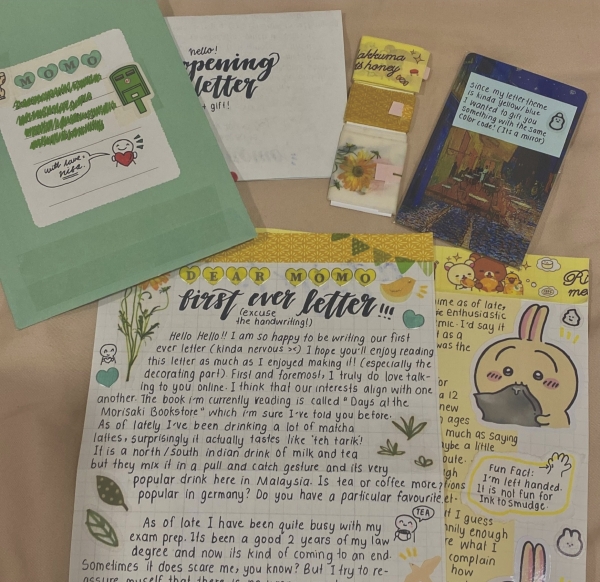 MOMO
will love,
nisa.
hello!
opening
letter
+ gift!
akkuma
s honey
since my letter theme
is kinda yellow/blue
I wanted to gift you
something with the same
color code! (Its a mirror)
DEAR MOMO
first ever letter!!!
(excuse
the handwriting!)
Hello Hello!! I am so happy to be writing our first
ever letter (kinda nervous ><) I hope you'll enjoy reading
this letter as much as I enjoyed making it! (especially the
decorating part) First and foremost, I truly do love talk-
ing to you online. I think that our interests align with one
another. The book i'm currently reading is called "Days at the
Morisaki Bookstore" which i'm sure I've told you before.
As of lately I've been drinking a lot of matcha
lattes, surprisingly it actually tastes like 'teh tarik'!
It is a north/south indian drink of milk and tea
but they mix it in a pull and catch gesture and its very
popular drink here in Malaysia. Is tea or coffee more
popular in germany? Do you have a particular favourite?
TEA
As of late I have been quite busy with my
exam prep. Its been a good 2 years of my law
degree and now its kind of coming to an end.
Sometimes it does scare me, you know? But I try to re-
assure myself that there is no
ume as of late,
enthusiastic
mic. I'd say it
as a
was the
or
a 12
new
ages
much as saying
aybe a little
oute.
gh
tions
et-
I guess
nily enough
re what I
complain
how
Fun Fact:
I'm left handed.
It is not fun for
Ink to smudge.